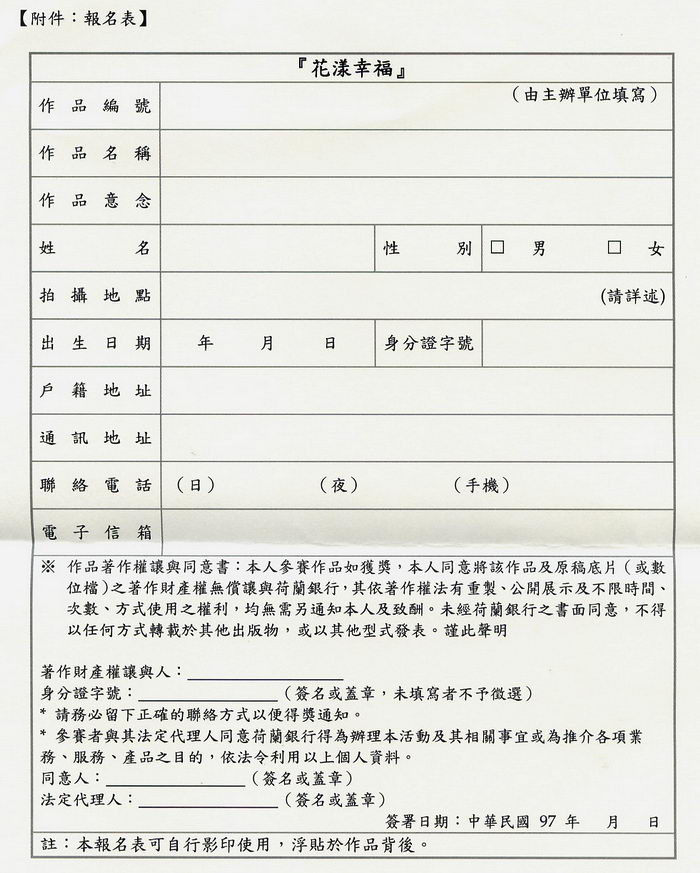 【附件：報名表】
『花漾幸福』
作品編號 （由主辦單位填寫）
作品名稱
作品意念
姓名 性別 □ 男 □ 女
拍攝地點 (請詳述)
出生日期 年 月 日 身分證字號
戶籍地址
通訊地址
聯絡電話 （日） （夜） （手機）
電子信箱
※ 作品著作權讓與同意書：本人參賽作品如獲獎，本人同意將該作品及原稿底片（或數
位檔）之著作財產權無償讓與荷蘭銀行，其依著作權法有重製、公開展示及不限時間、
次數、方式使用之權利，均無需另通知本人及致酬。未經荷蘭銀行之書面同意，不得
以任何方式轉載於其他出版物，或以其他型式發表。謹此聲明
著作財產權讓與人：
身分證字號： （簽名或蓋章，未填寫者不予徵選）
* 請務必留下正確的聯絡方式以便得獎通知。
* 參賽者與其法定代理人同意荷蘭銀行得為辦理本活動及其相關事宜或為推介各項業
務、服務、產品之目的，依法令利用以上個人資料。
同意人： （簽名或蓋章）
法定代理人： （簽名或蓋章）
簽署日期：中華民國 97 年 月 日
註：本報名表可自行影印使用，浮貼於作品背後。